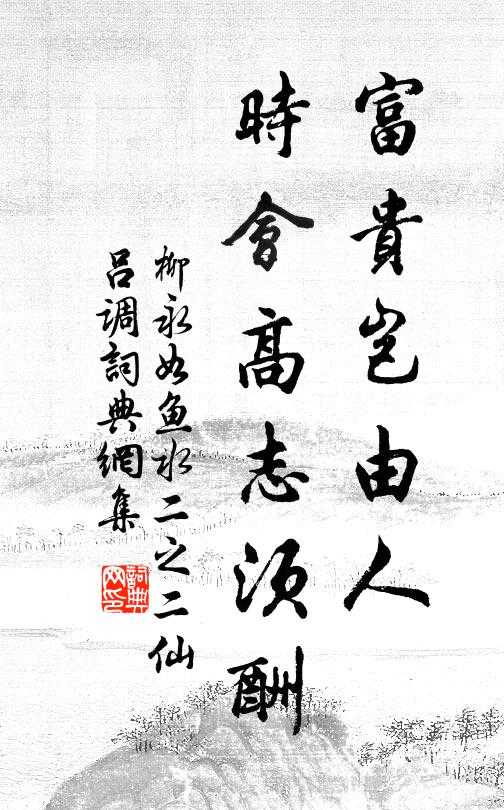 富貴岂由人
時會高志須酬
柳永如鱼水二之二仙
吕调詞典網集
詞典网印